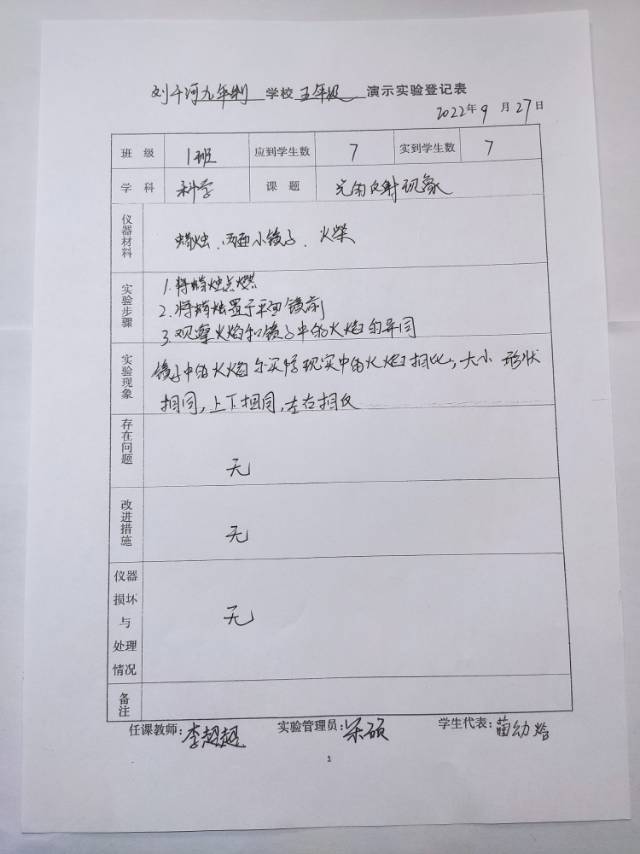 刘千河九年制 学校 五年级 演示实验登记表
2022年9月27日
班级 1班 应到学生数 7 实到学生数 7
学科 科学 课题 光的反射现象
仪器材料 蜡烛、两面小镜子、火柴
实验步骤 1.将蜡烛点燃
2.将蜡烛置于平面镜前
3.观察火焰和镜子中的火焰的异同
实验现象 镜子中的火焰与现实中的火焰相比,大小 形状
相同,上下相同,左右相反
存在问题 无
改进措施 无
仪器损坏与处理情况 无
备注
任课教师:李超超 实验管理员:宋硕 学生代表:苗幼
1